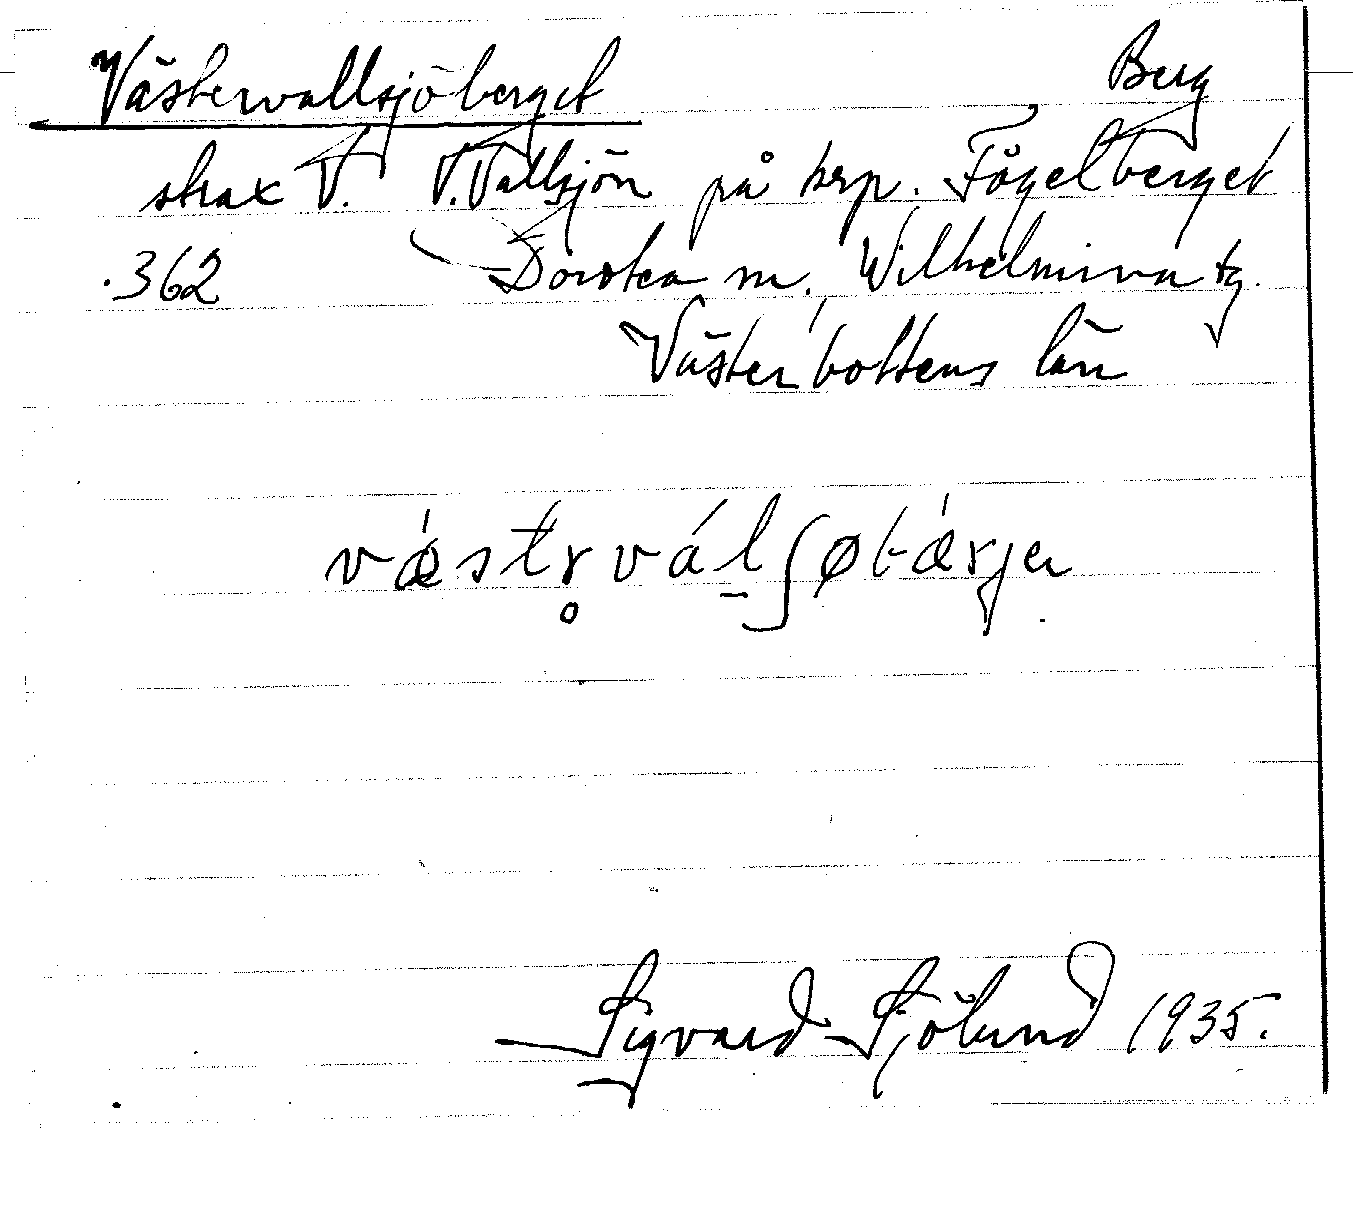 Västervallsjöberget Berg
strax V. V. Vallsjön på krp. Fågelberget
362 Dorotea sn. Wilhelmina tg.
Västerbottens län
vǽstr̥ vál̠ʃøbǽrjɐ
Sigvard Sjölund 1935.